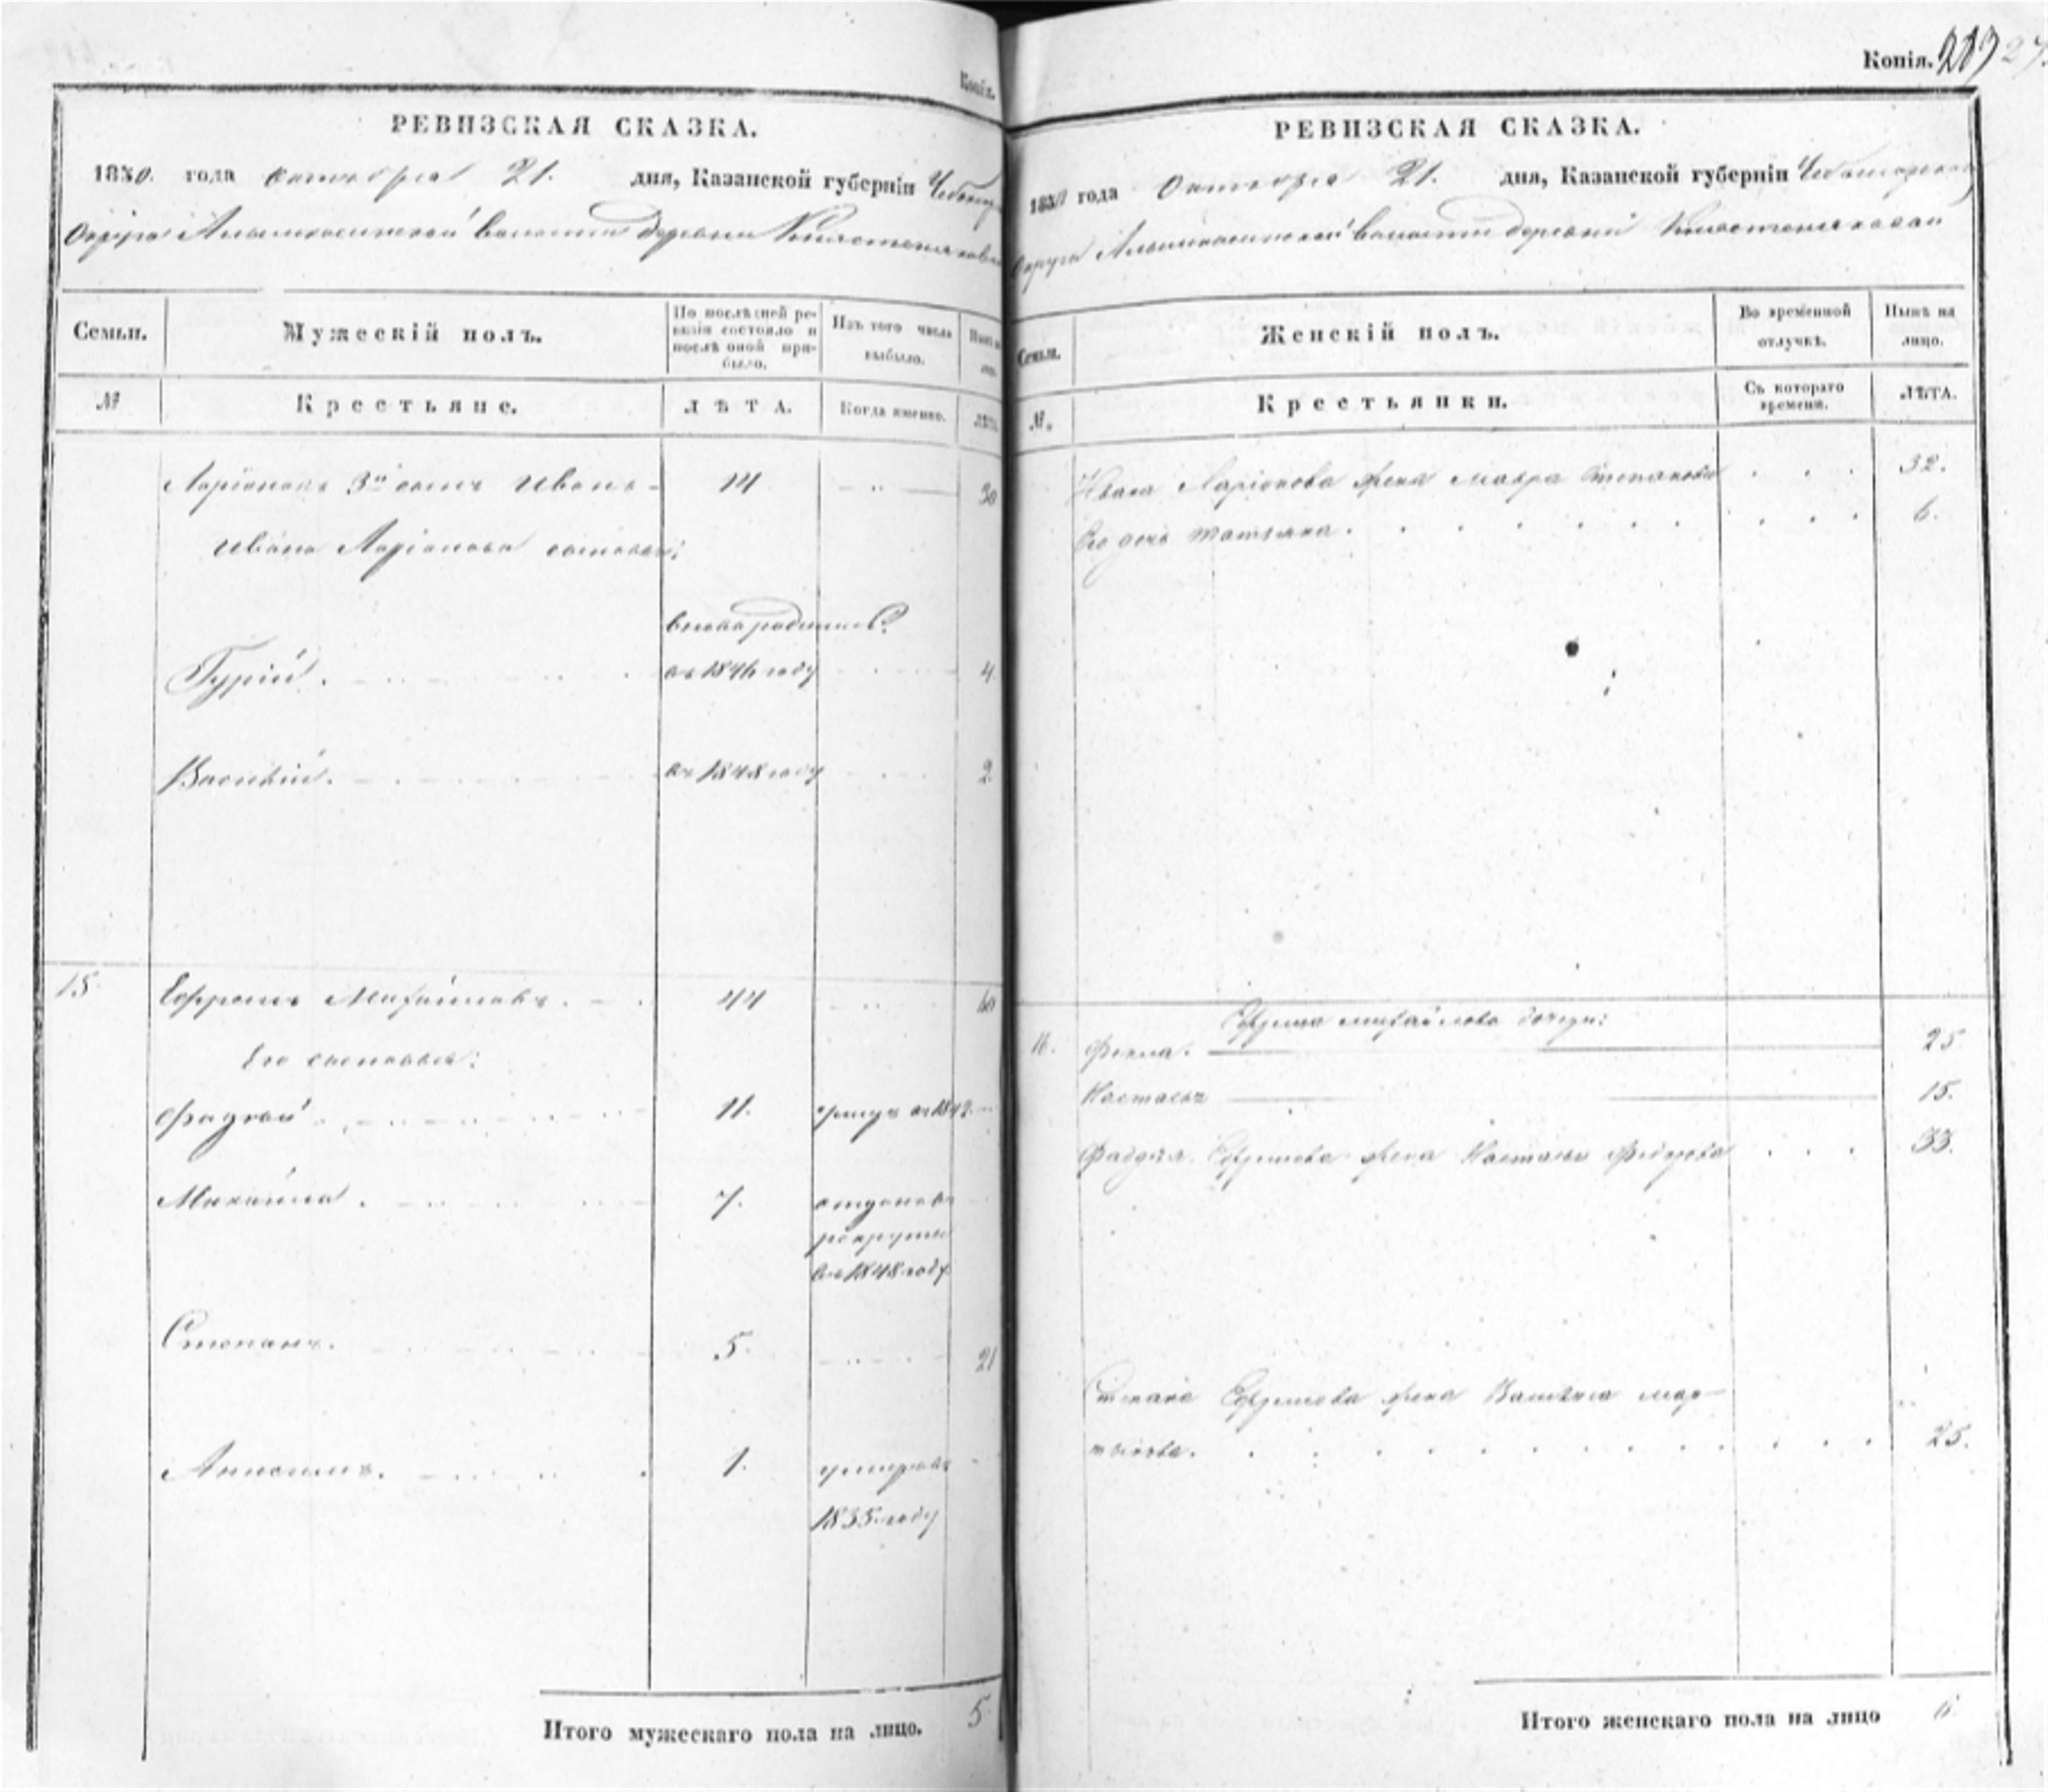 Копія.
РЕВИЗСКАЯ СКАЗКА.
1850. года октября 21. дня, Казанской губерніи
Округа волости деревни
Семьи.
Мужескій полъ.
По послѣдней ре-
визіи состояло и
послѣ оной при-
было.
Изъ того числа
выбыло.
№
Крестьяне.
ЛѢТА.
Когда именно.
ЛѢТА
Ларіоновъ 3й сынъ Иванъ 14 30
Ивана Ларіонова сыновья:
вновь родились
Гурій. въ 1846 году 4
Василій. въ 1848 году 2.
15. Ефремъ Михайловъ. 44 60
Его сыновья:
11.
Михайла. 7. отданъ въ
рекруты
въ 1848 году
Степанъ. 5. 21
1. умеръ въ
1835 году
Итого мужескаго пола на лицо. 5
Копія. 27.
РЕВИЗСКАЯ СКАЗКА.
1850 года Октября 21. дня, Казанской губерніи Чебоксарскаго
Округа волости деревни
Семьи.
Женскій полъ.
Во временной
отлучкѣ.
Нынѣ на
лицо.
№.
Крестьянки.
Съ котораго
времени.
ЛѢТА.
Ивана Ларіонова жена Мавра Степанова 32.
Его дочь Татьяна. 6.
Ефрема Михайлова дочери:
Фекла. 25
Настасья 15.
Ефремова жена Настасья Федорова 33.
Степана Ефремова жена мар-
тынова. 25.
Итого женскаго пола на лицо 6